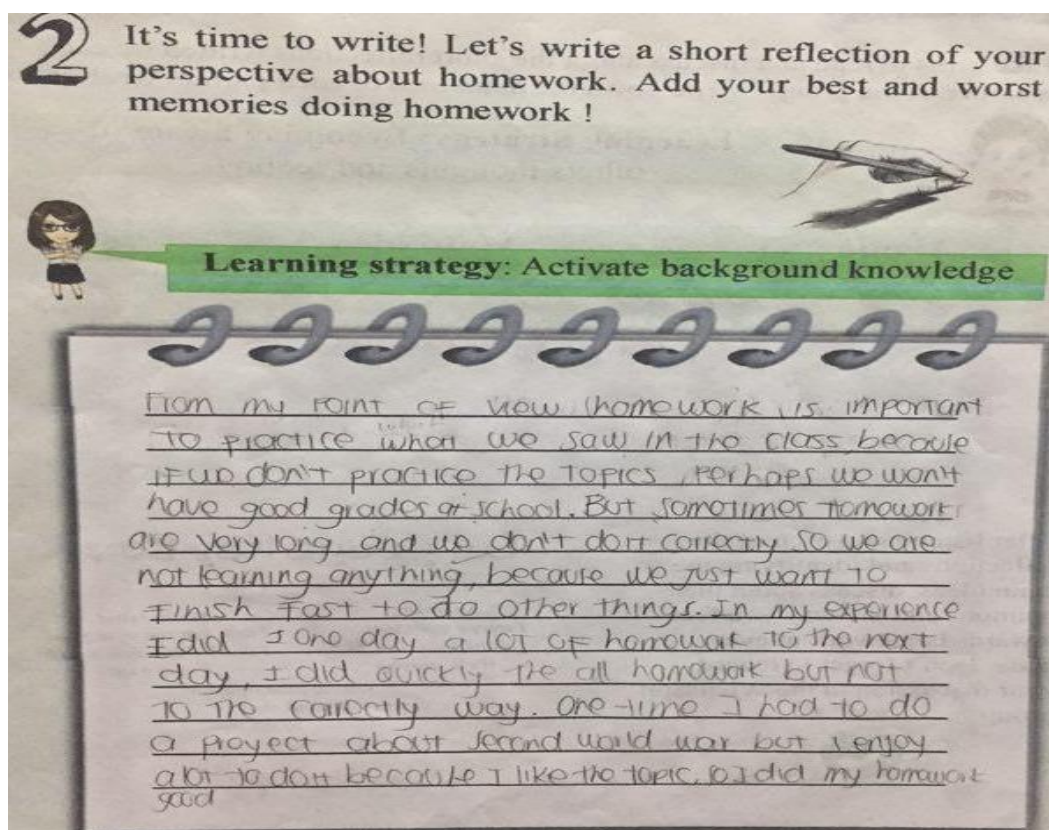 2
It's time to write! Let's write a short reflection of your
perspective about homework. Add your best and worst
memories doing homework !
Learning strategy: Activate background knowledge
From my point of view homework is important
to practice what we saw in the class, because
if we don't practice the topics, perhaps we won't
have good grades at school. But sometimes homework
are very long and we don't do it correctly so we are
not learning anything, because we just want to
finish fast to do other things. In my experience
I did I one day a lot of homework to the next
day, I did quickly the all homework but not
to the correctly way. One time I had to do
a proyect about second world war but I enjoy
a lot to do it because I like the topic, so I did my homework
good